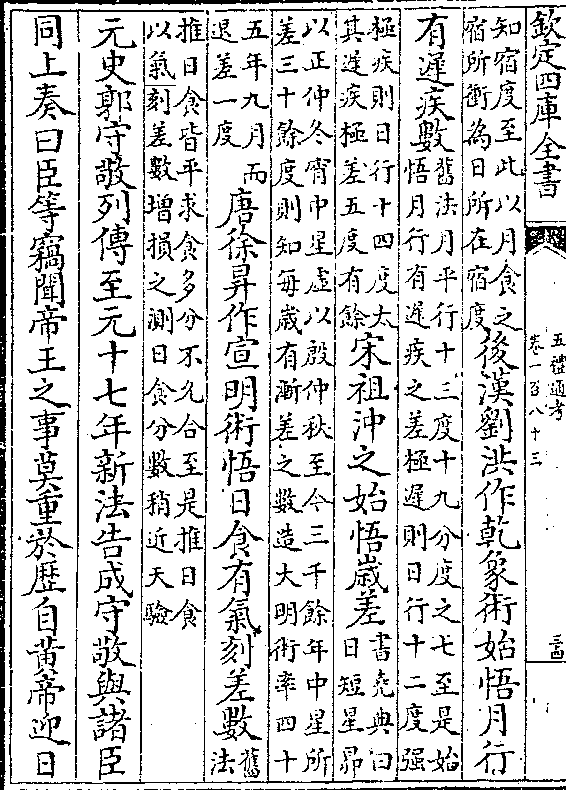 欽定四庫全書
五禮通考
卷一百八十三
知宿度至此以月食之
宿所衝為日所在宿度
後漢劉洪作乾象術始悟月行
有遲疾數
舊法月平行十三度十九分度之七至是始
悟月行有遲疾之差極遲則日行十二度强
極疾則日行十四度太
其遲疾極差五度有餘
宋祖沖之始悟歲差
書堯典曰
日短星昴
以正仲冬宵中星虛以殷仲秋至今三千餘年中星所
差三十餘度則知每歲有漸差之數造大明術率四十
五年九月而
退差一度
唐徐昇作宣明術悟日食有氣刻差數
舊
法
推日食皆平求食多分不久合至是推日食
以氣刻差數增損之測日食分數稍近天驗
元史郭守敬列傳至元十七年新法告成守敬與諸臣
同上奏曰臣等竊聞帝王之事莫重於歷自黃帝迎日